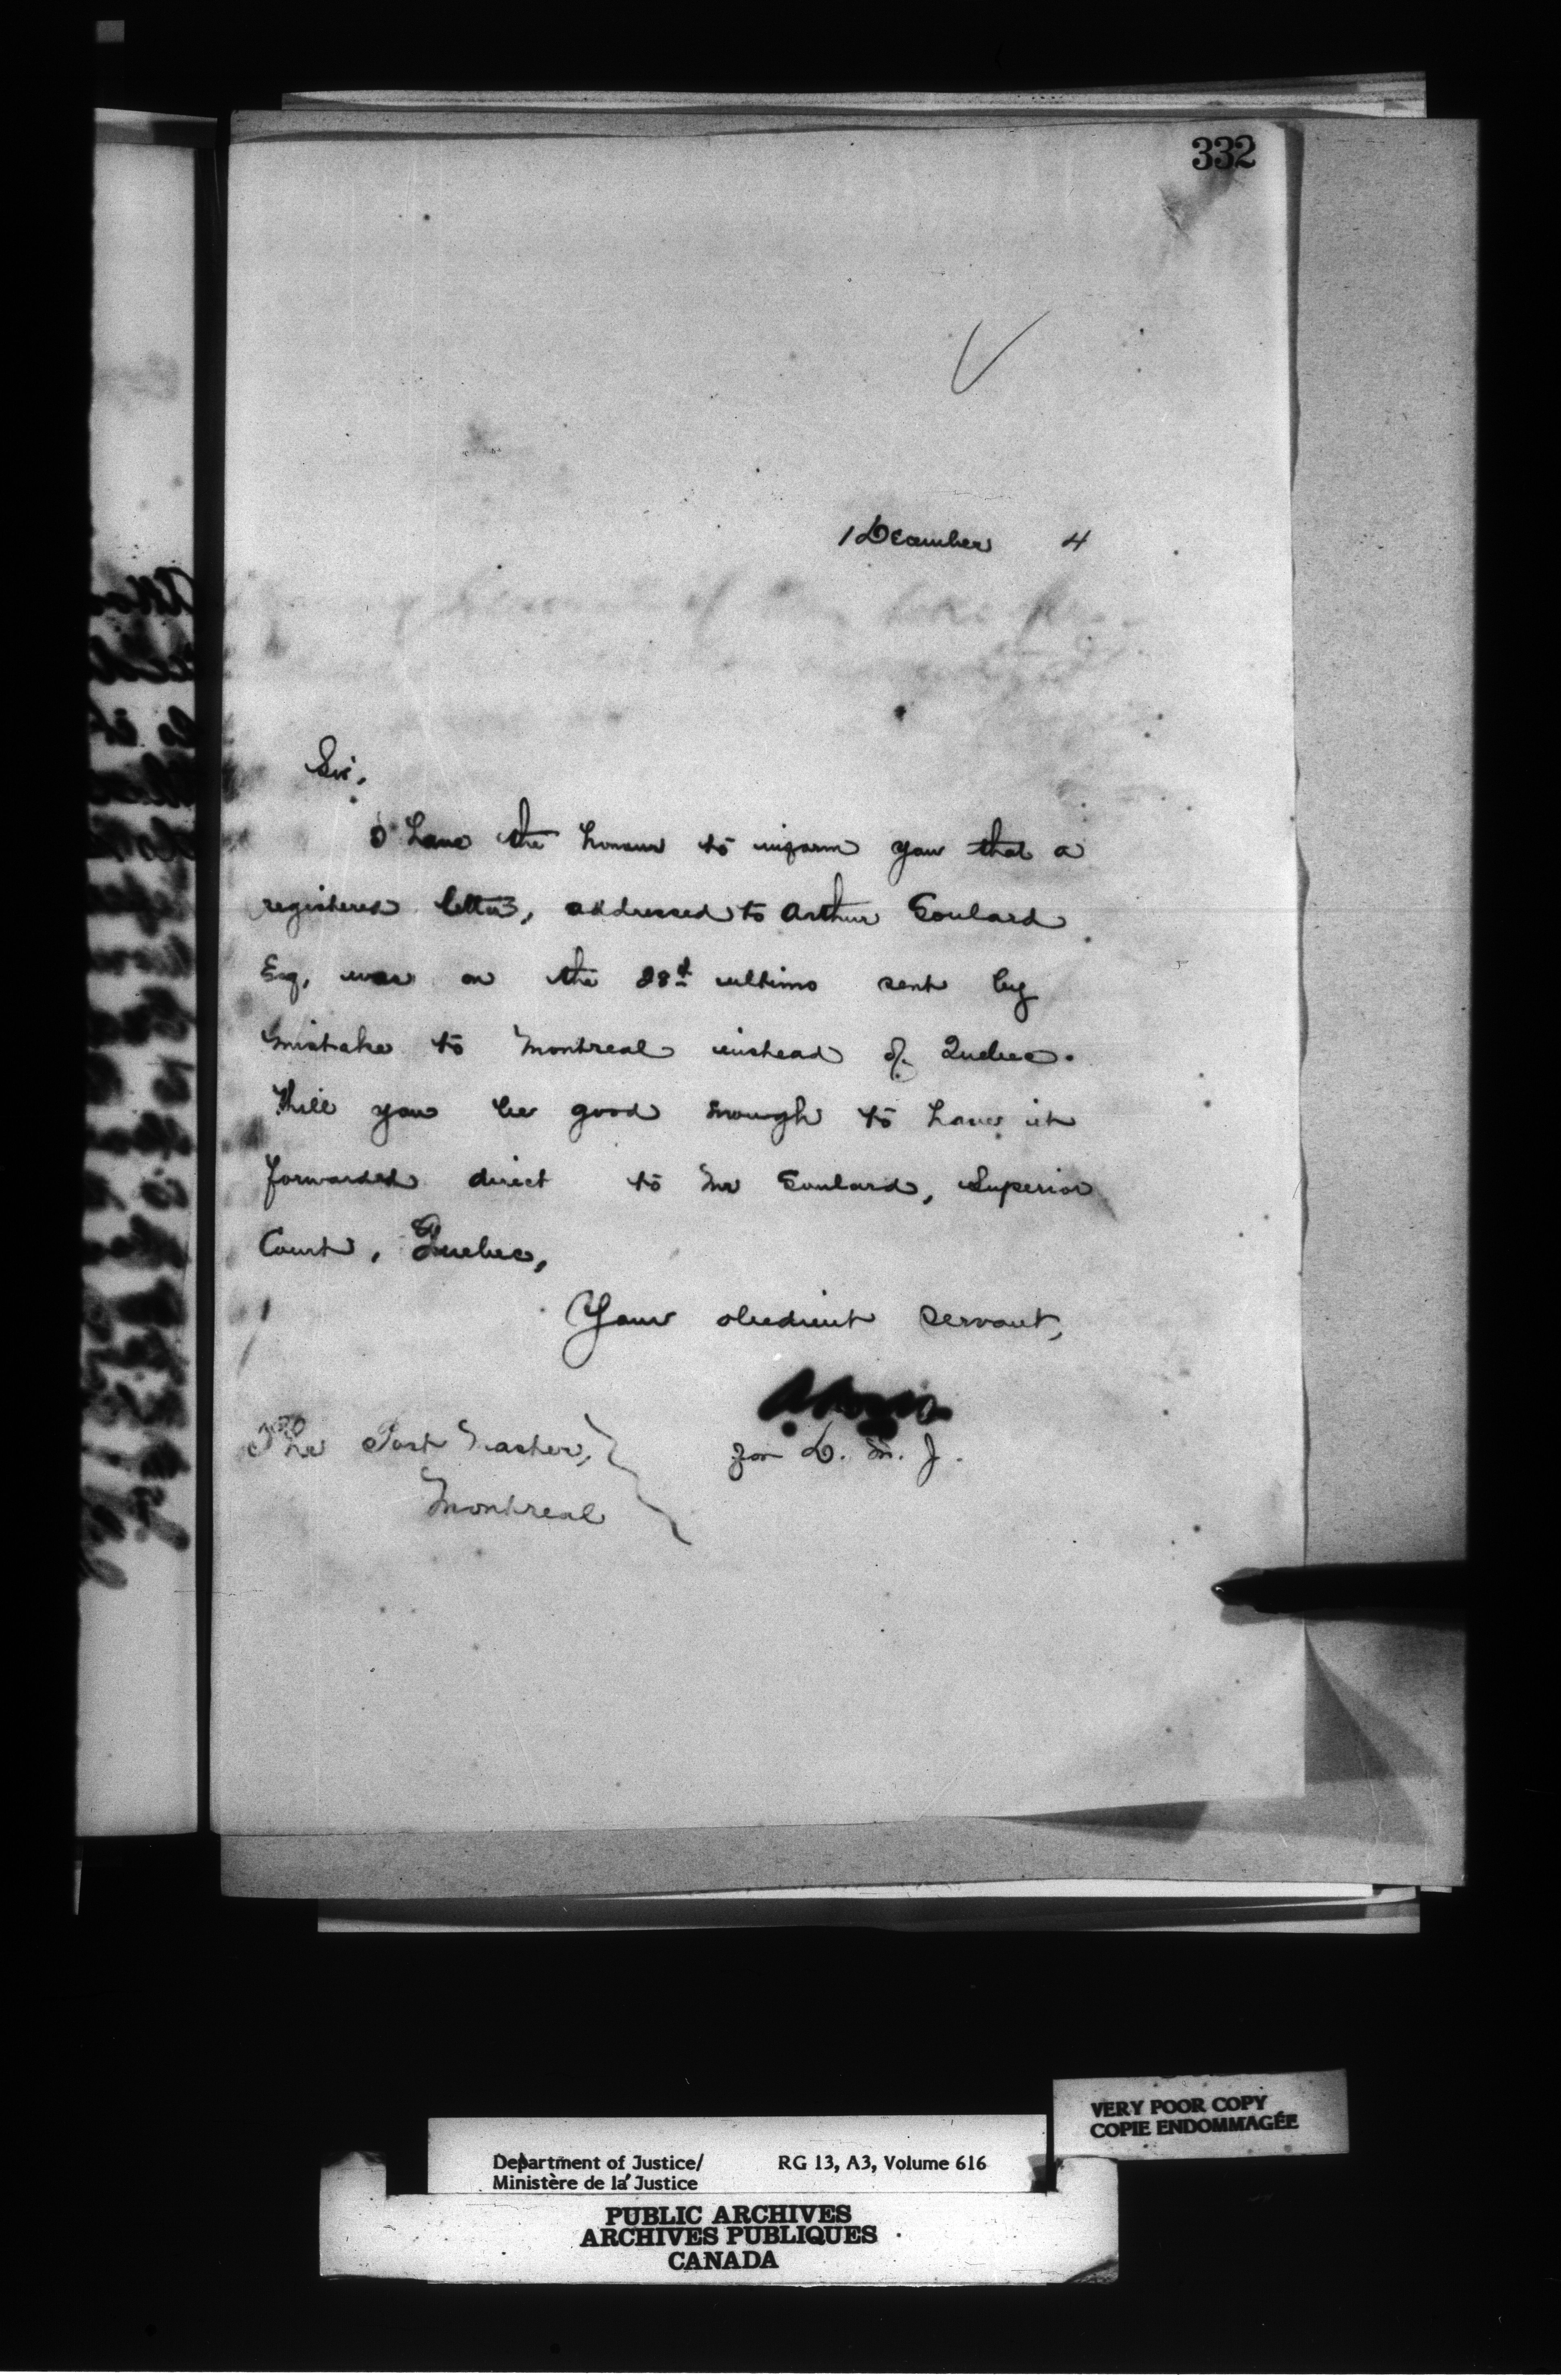 332
1 December 4
Sir,
I have the honour to inform you that a
registered letter, addressed to Arthur Goulard
Esq, was on the 28th ultimo sent by
mistake to Montreal instead of Quebec.
Will you be good enough to have it
forwarded direct to Mr Goulard, Superior
Court, Quebec,
Your obedient servant,
for D. M. J.
The Post Master,
Montreal
VERY POOR COPY
COPIE ENDOMMAGÉE
Department of Justice/ RG 13, A3, Volume 616
Ministère de la Justice
PUBLIC ARCHIVES
ARCHIVES PUBLIQUES
CANADA